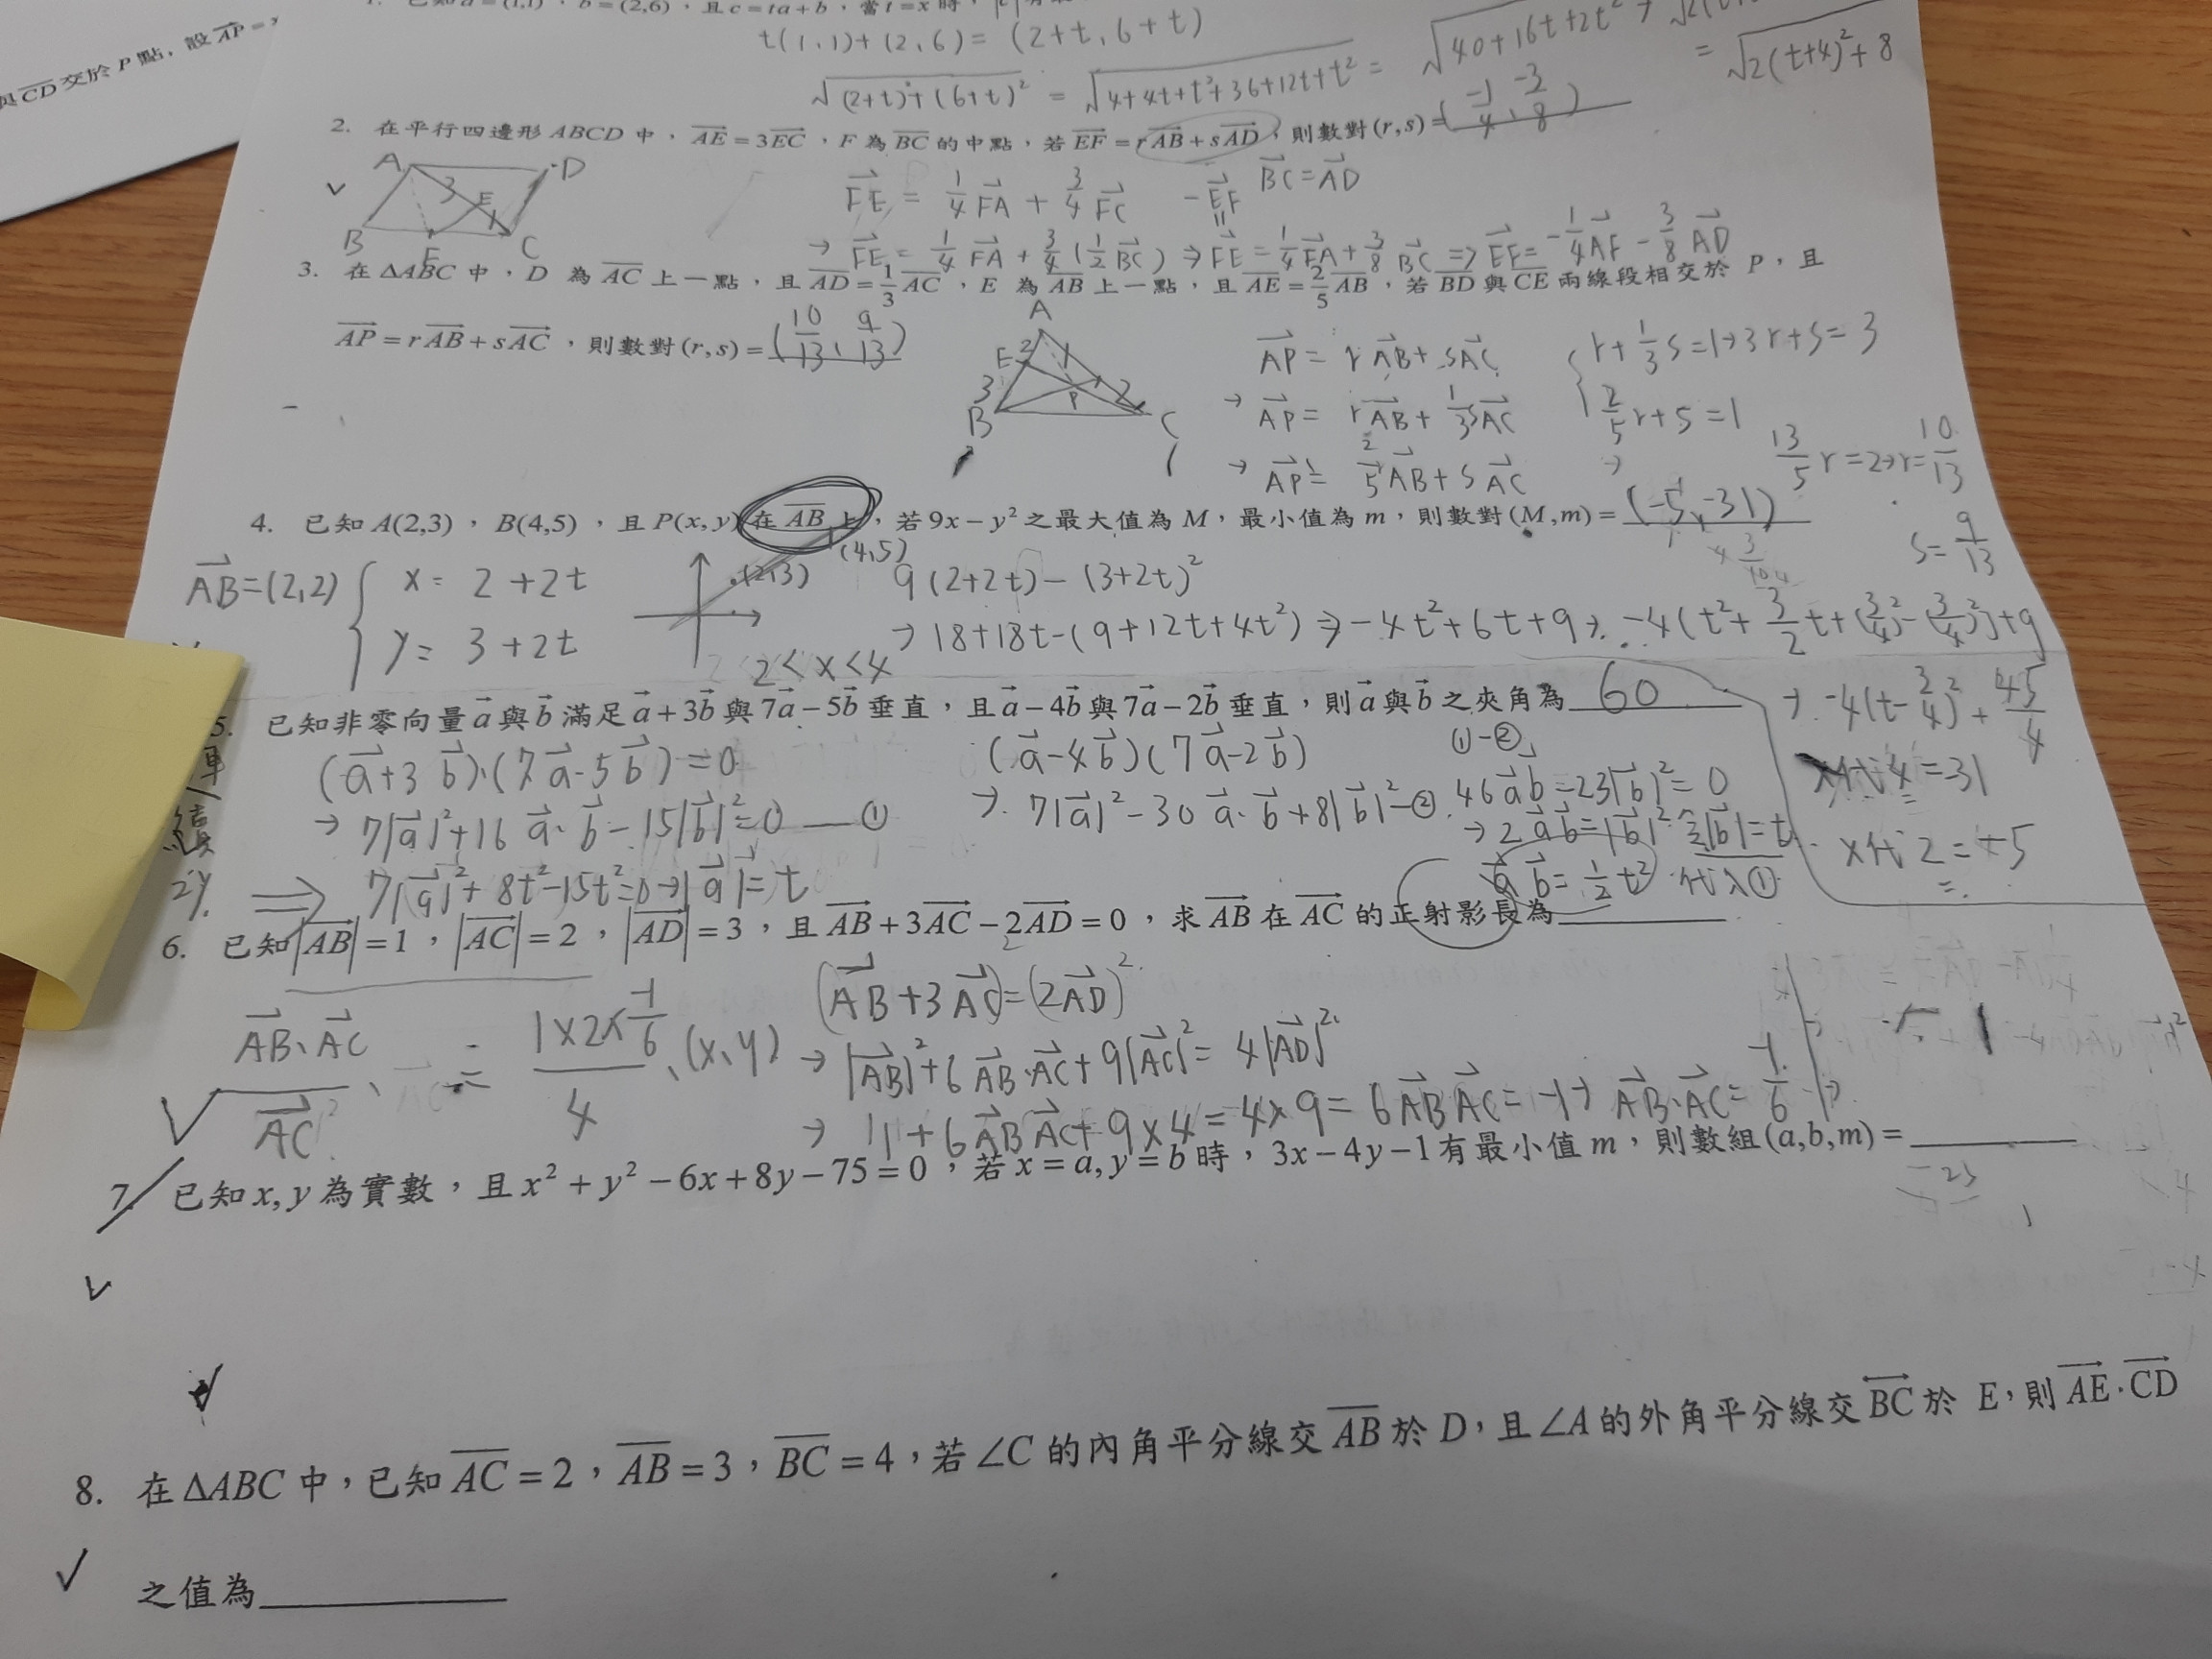 與CD交於 P 點，設AP=
1. 已知a=(1,1)，b=(2,6)，且c=ta+b，當t=x時，
t(1,1)+(2,6)=(2+t,6+t)
√(2+t)²+(6+t)² = √4+4t+t²+36+12t+t² = √40+16t+2t²
= √2(t+4)²+8
2. 在平行四邊形ABCD中，AE=3EC，F為BC的中點，若EF=rAB+sAD，則數對(r,s)=(-1/4, -3/8)
A D 3 E 1 B F C
FE = 1/4 FA + 3/4 FC -EF BC=AD
→ FE = 1/4 FA + 3/4 (1/2 BC) → FE = 1/4 FA + 3/8 BC ⇒ EF = -1/4 AF - 3/8 AD
3. 在ΔABC中，D為AC上一點，且AD=1/3 AC，E為AB上一點，且AE=2/5 AB，若BD與CE兩線段相交於P，且
AP=rAB+sAC，則數對(r,s)=(10/13, 9/13)
A E 2 1 3 2 P B C
AP = rAB+sAC
→ AP = rAB+1/3 sAC
→ AP = 2/5 AB+sAC
r+1/3 s=1→3r+s=3
2/5 r+s=1
→ 13/5 r=2→r=10/13
s=9/13
4. 已知A(2,3)，B(4,5)，且P(x,y)在AB上，若9x-y²之最大值為M，最小值為m，則數對(M,m)=(-5,-31)
AB=(2,2) { x=2+2t
y=3+2t
(2,3) (4,5)
2<x<4
9(2+2t)-(3+2t)²
→ 18+18t-(9+12t+4t²) → -4t²+6t+9 → -4(t²+3/2 t+(3/4)²-(3/4)²)+9
→ -4(t-3/4)²+45/4
x代4=-31
x代2=-5
5. 已知非零向量a與b滿足a+3b與7a-5b垂直，且a-4b與7a-2b垂直，則a與b之夾角為60
(a+3b)·(7a-5b)=0
→ 7|a|²+16a·b-15|b|²=0 —①
⇒ 7|a|²+8t²-15t²=0→|a|=t
(a-4b)(7a-2b)
→ 7|a|²-30a·b+8|b|² —②
①-②
46ab-23|b|²=0
→ 2ab=|b|² 令|b|=t
a b=1/2 t² 代入①
6. 已知|AB|=1，|AC|=2，|AD|=3，且AB+3AC-2AD=0，求AB在AC的正射影長為
AB·AC
AC²
= 1×2×-1/6
4
(x,y)
(AB+3AC)²=(2AD)²
→ |AB|²+6AB·AC+9|AC|²=4|AD|²
→ 1+6AB AC+9×4=4×9=6AB AC=-1→ AB·AC=-1/6
7. 已知x,y為實數，且x²+y²-6x+8y-75=0，若x=a,y=b時，3x-4y-1有最小值m，則數組(a,b,m)=
-25
8. 在ΔABC中，已知AC=2，AB=3，BC=4，若∠C的內角平分線交AB於D，且∠A的外角平分線交BC於 E，則AE·CD
之值為